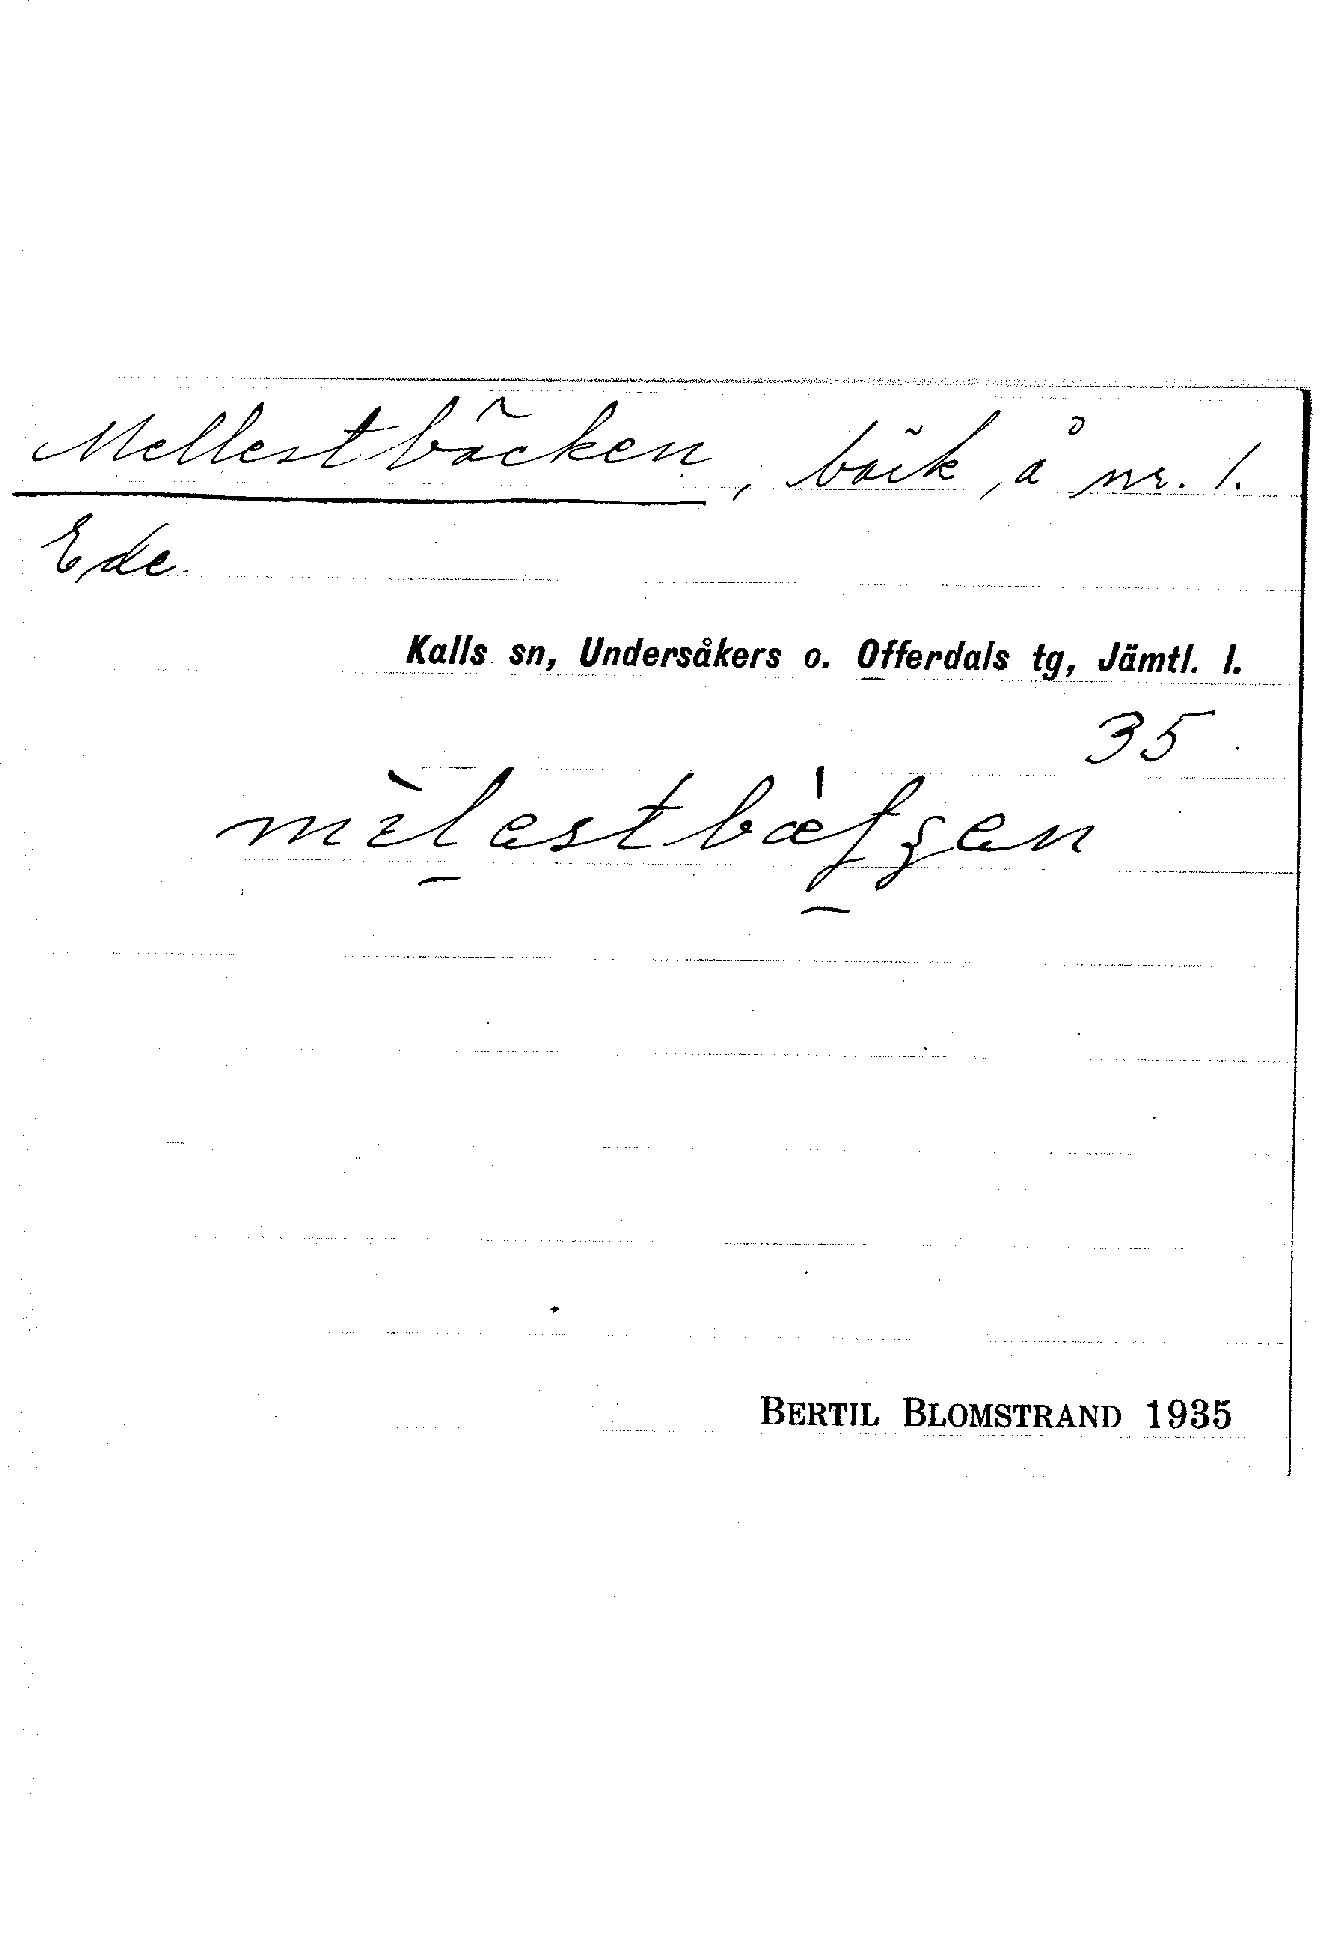 Mellestbäcken, bäck, å nr. 1.
Ede.
Kalls sn, Undersåkers o. Offerdals tg, Jämtl. l.
35
BERTIL BLOMSTRAND 1935